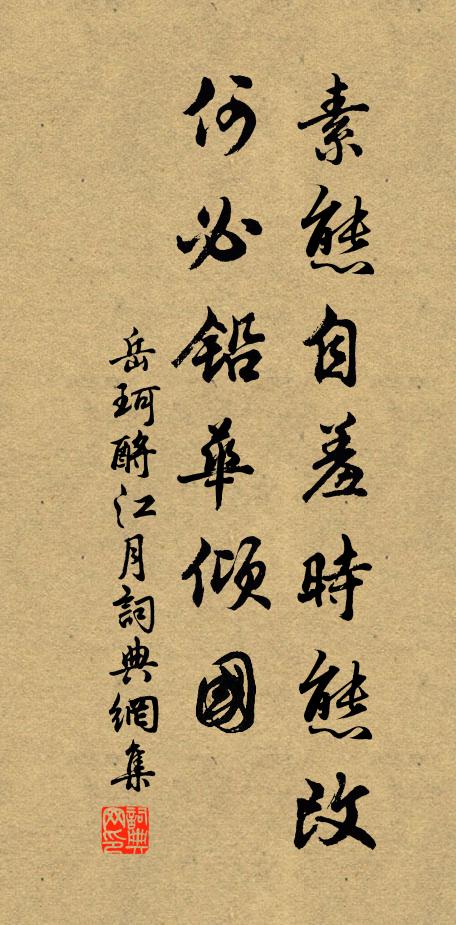 素態自羞時態改
何必鉛華傾國
岳珂酹江月詞典網集
詞典
网印